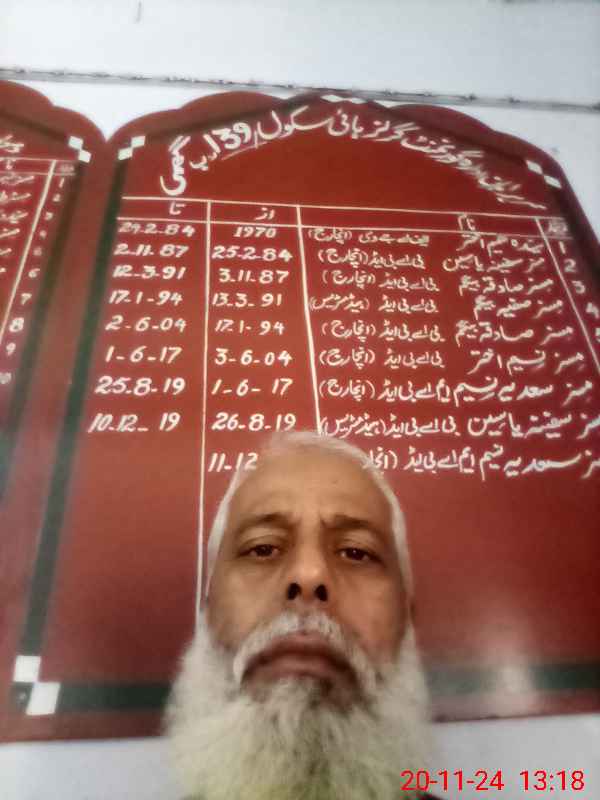 گورنمنٹ گرلز ہائی سکول 139 ر ب گھمی
نام از تا
1 سیدہ نسیم اختر ایف اے جے وی (انچارج) 1970 24.2.84
2 مسز سفینہ یاسین بی اے بی ایڈ (انچارج) 25.2.84 2.11.87
3 مسز صادقہ بیگم بی اے بی ایڈ (انچارج) 3.11.87 12.3.91
4 مسز صفیہ بیگم بی اے بی ایڈ (ہیڈمسٹریس) 13.3.91 17.1-94
5 مسز صادقہ بیگم بی اے بی ایڈ (انچارج) 17.1-94 2-6-04
مسز نسیم اختر بی اے بی ایڈ (انچارج) 3-6.04 1-6-17
مسز سعدیہ نسیم ایم اے بی ایڈ (انچارج) 1-6-17 25.8-19
مسز سفینہ یاسین بی اے بی ایڈ (ہیڈمسٹریس) 26-8.19 10.12-19
مسز سعدیہ نسیم ایم اے بی ایڈ 11.12
1
2
3
4
5
6
7
8
9
10
20-11-24 13:18